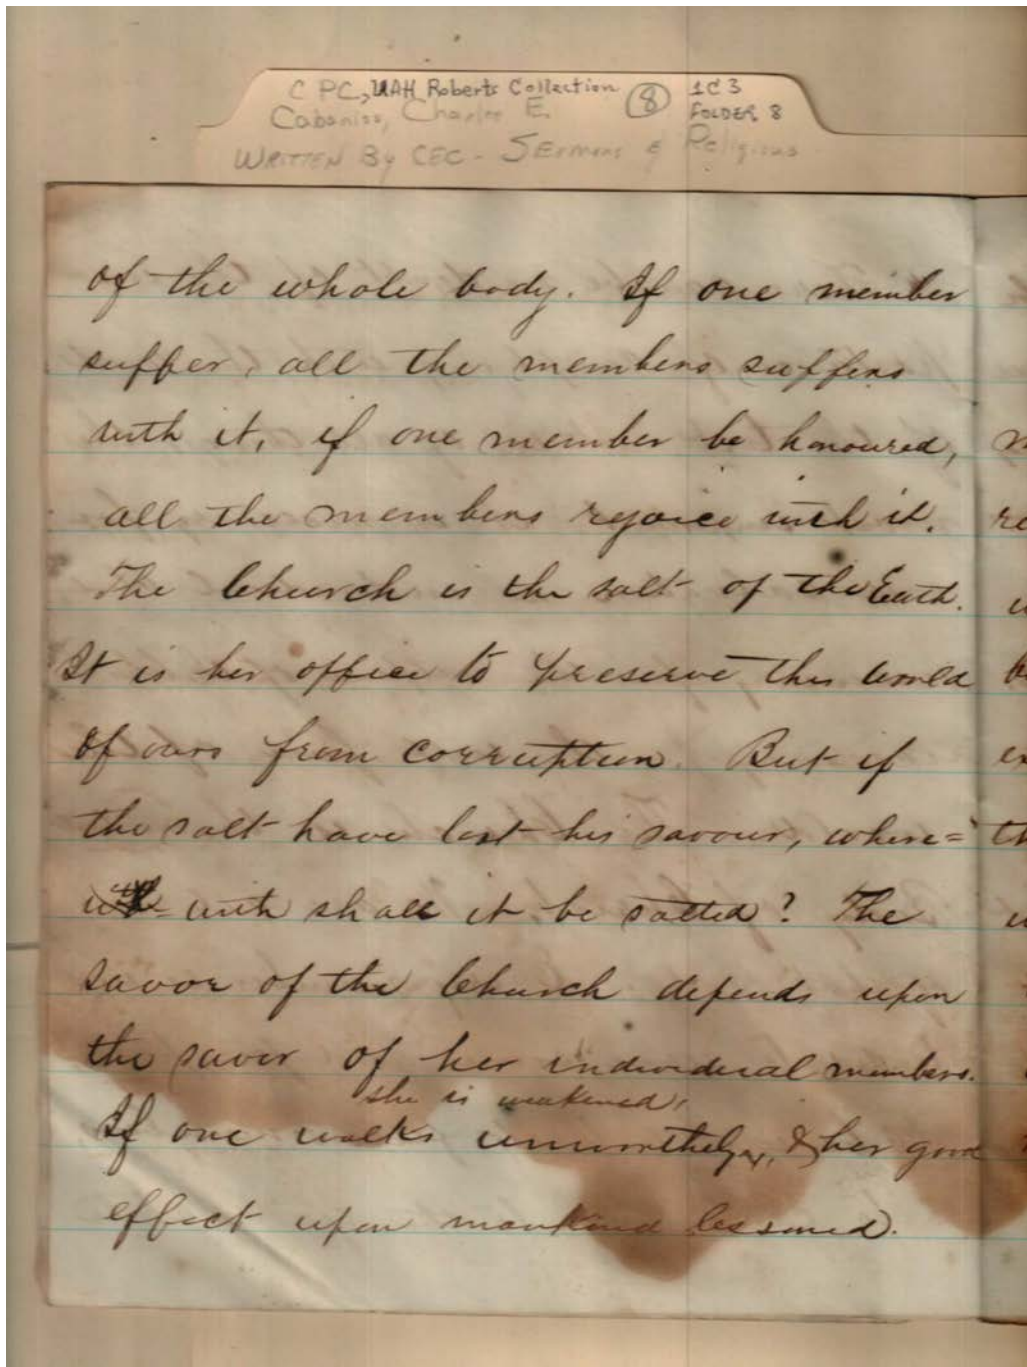 C PC, UAH Roberts Collection 8 1C3
Cabaniss, Charles E. FOLDER 8
WRITTEN By CEC - SERMONS & Religious
of the whole body. If one member
suffer, all the members suffers
with it, if one member be honoured,
all the members rejoice with it.
The Church is the salt of the Earth.
It is her office to preserve this world
of ours from corruption. But if
the salt have lost his savour, where=
with shall it be salted? The
savor of the Church depends upon
the savor of her individual members.
she is weakened,
If one walks unworthely, & her good
effect upon mankind lessoned.